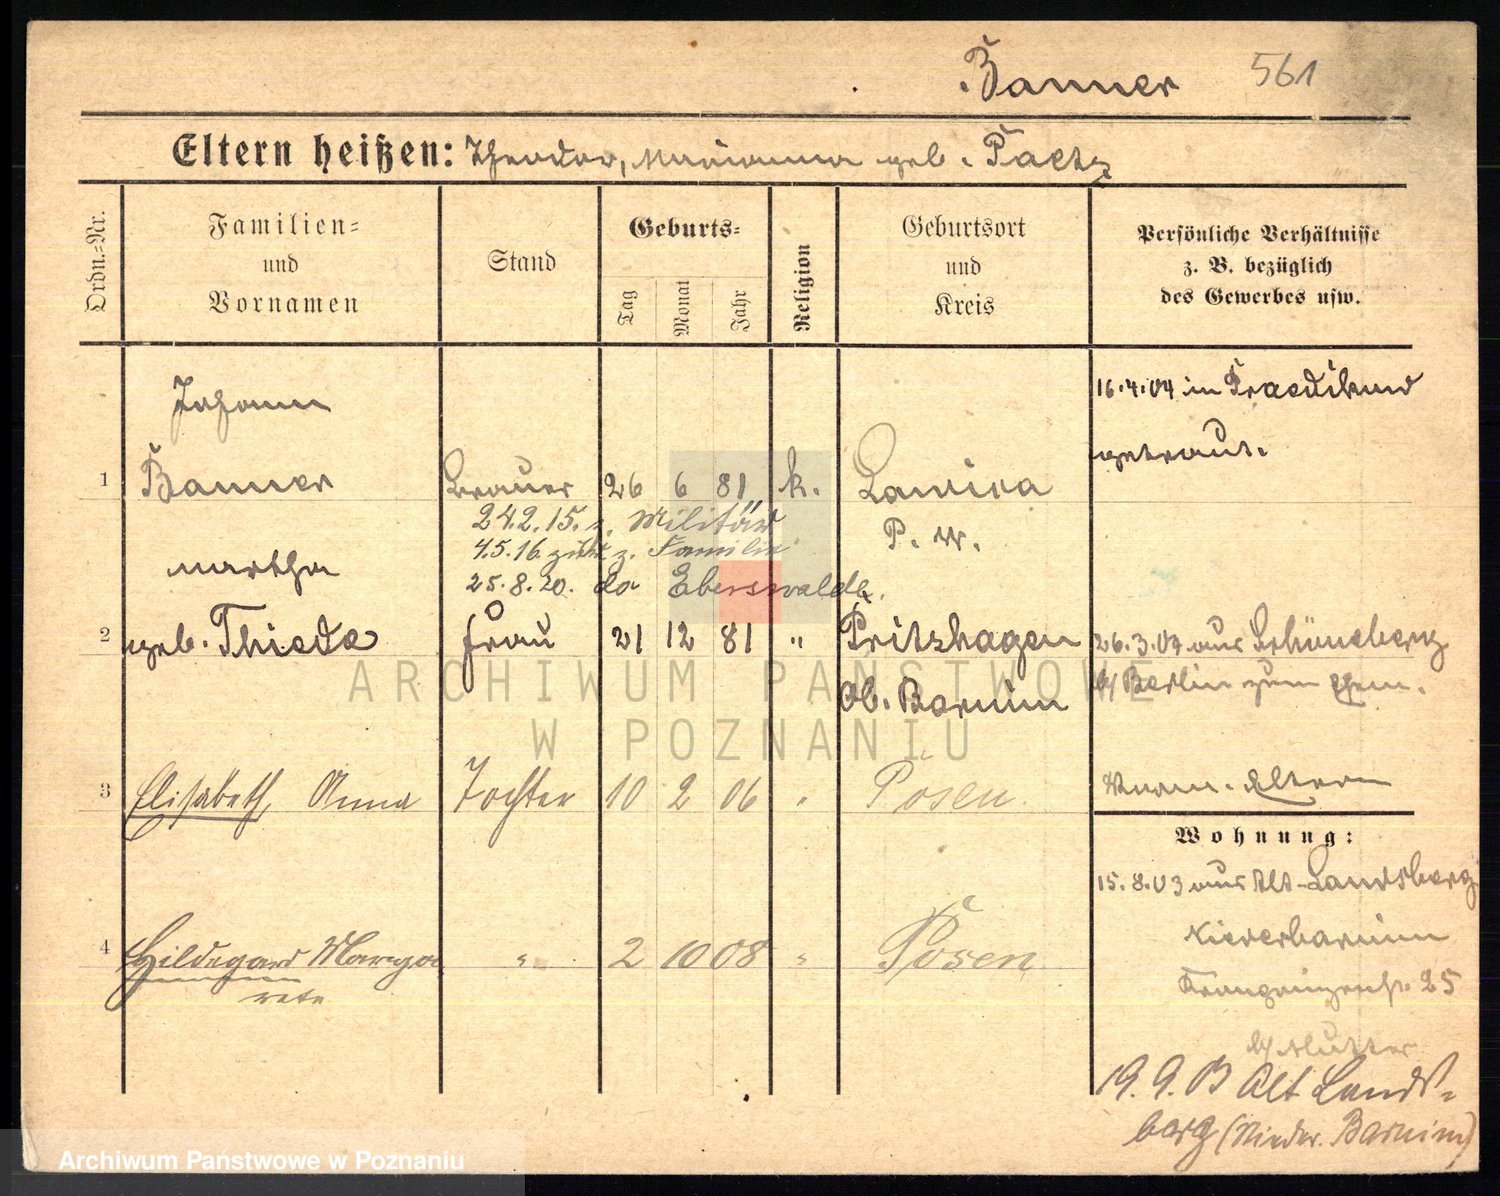 Banner 561
Eltern heißen: Theodor, Marianna geb. Paetz
Ordn.-Nr.
Familien-
und
Vornamen
Stand
Geburts-
Tag
Monat
Jahr
Religion
Geburtsort
und
Kreis
Persönliche Verhältnisse
z. B. bezüglich
des Gewerbes usw.
Johann
16.4.04 in
getraut.
1 Banner Brauer 26 6 81 k. Lawica
24.2.15. z. Militär
P. W.
4.5.16. zurück z. Familie
Martha
25.8.20. do Eberswalde.
2 geb. Thiede Frau 21 12 81 " Pritzhagen
26.3.04 aus Schöneberg
Ob. Barnim
b/ Berlin zum Ehem.
3 Elisabeth Anna Tochter 10 2 06 " Posen
Eltern
Wohnung:
15.8.03 aus Alt-Landsberg
Niederbarnim
4 Hildegard Marga " 2 10 08 " Posen
rete
25
b/ Mutter
19.9.13 Alt Lands-
berg (Nieder. Barnim)
ARCHIWUM PAŃSTWOWE
W POZNANIU
Archiwum Państwowe w Poznaniu